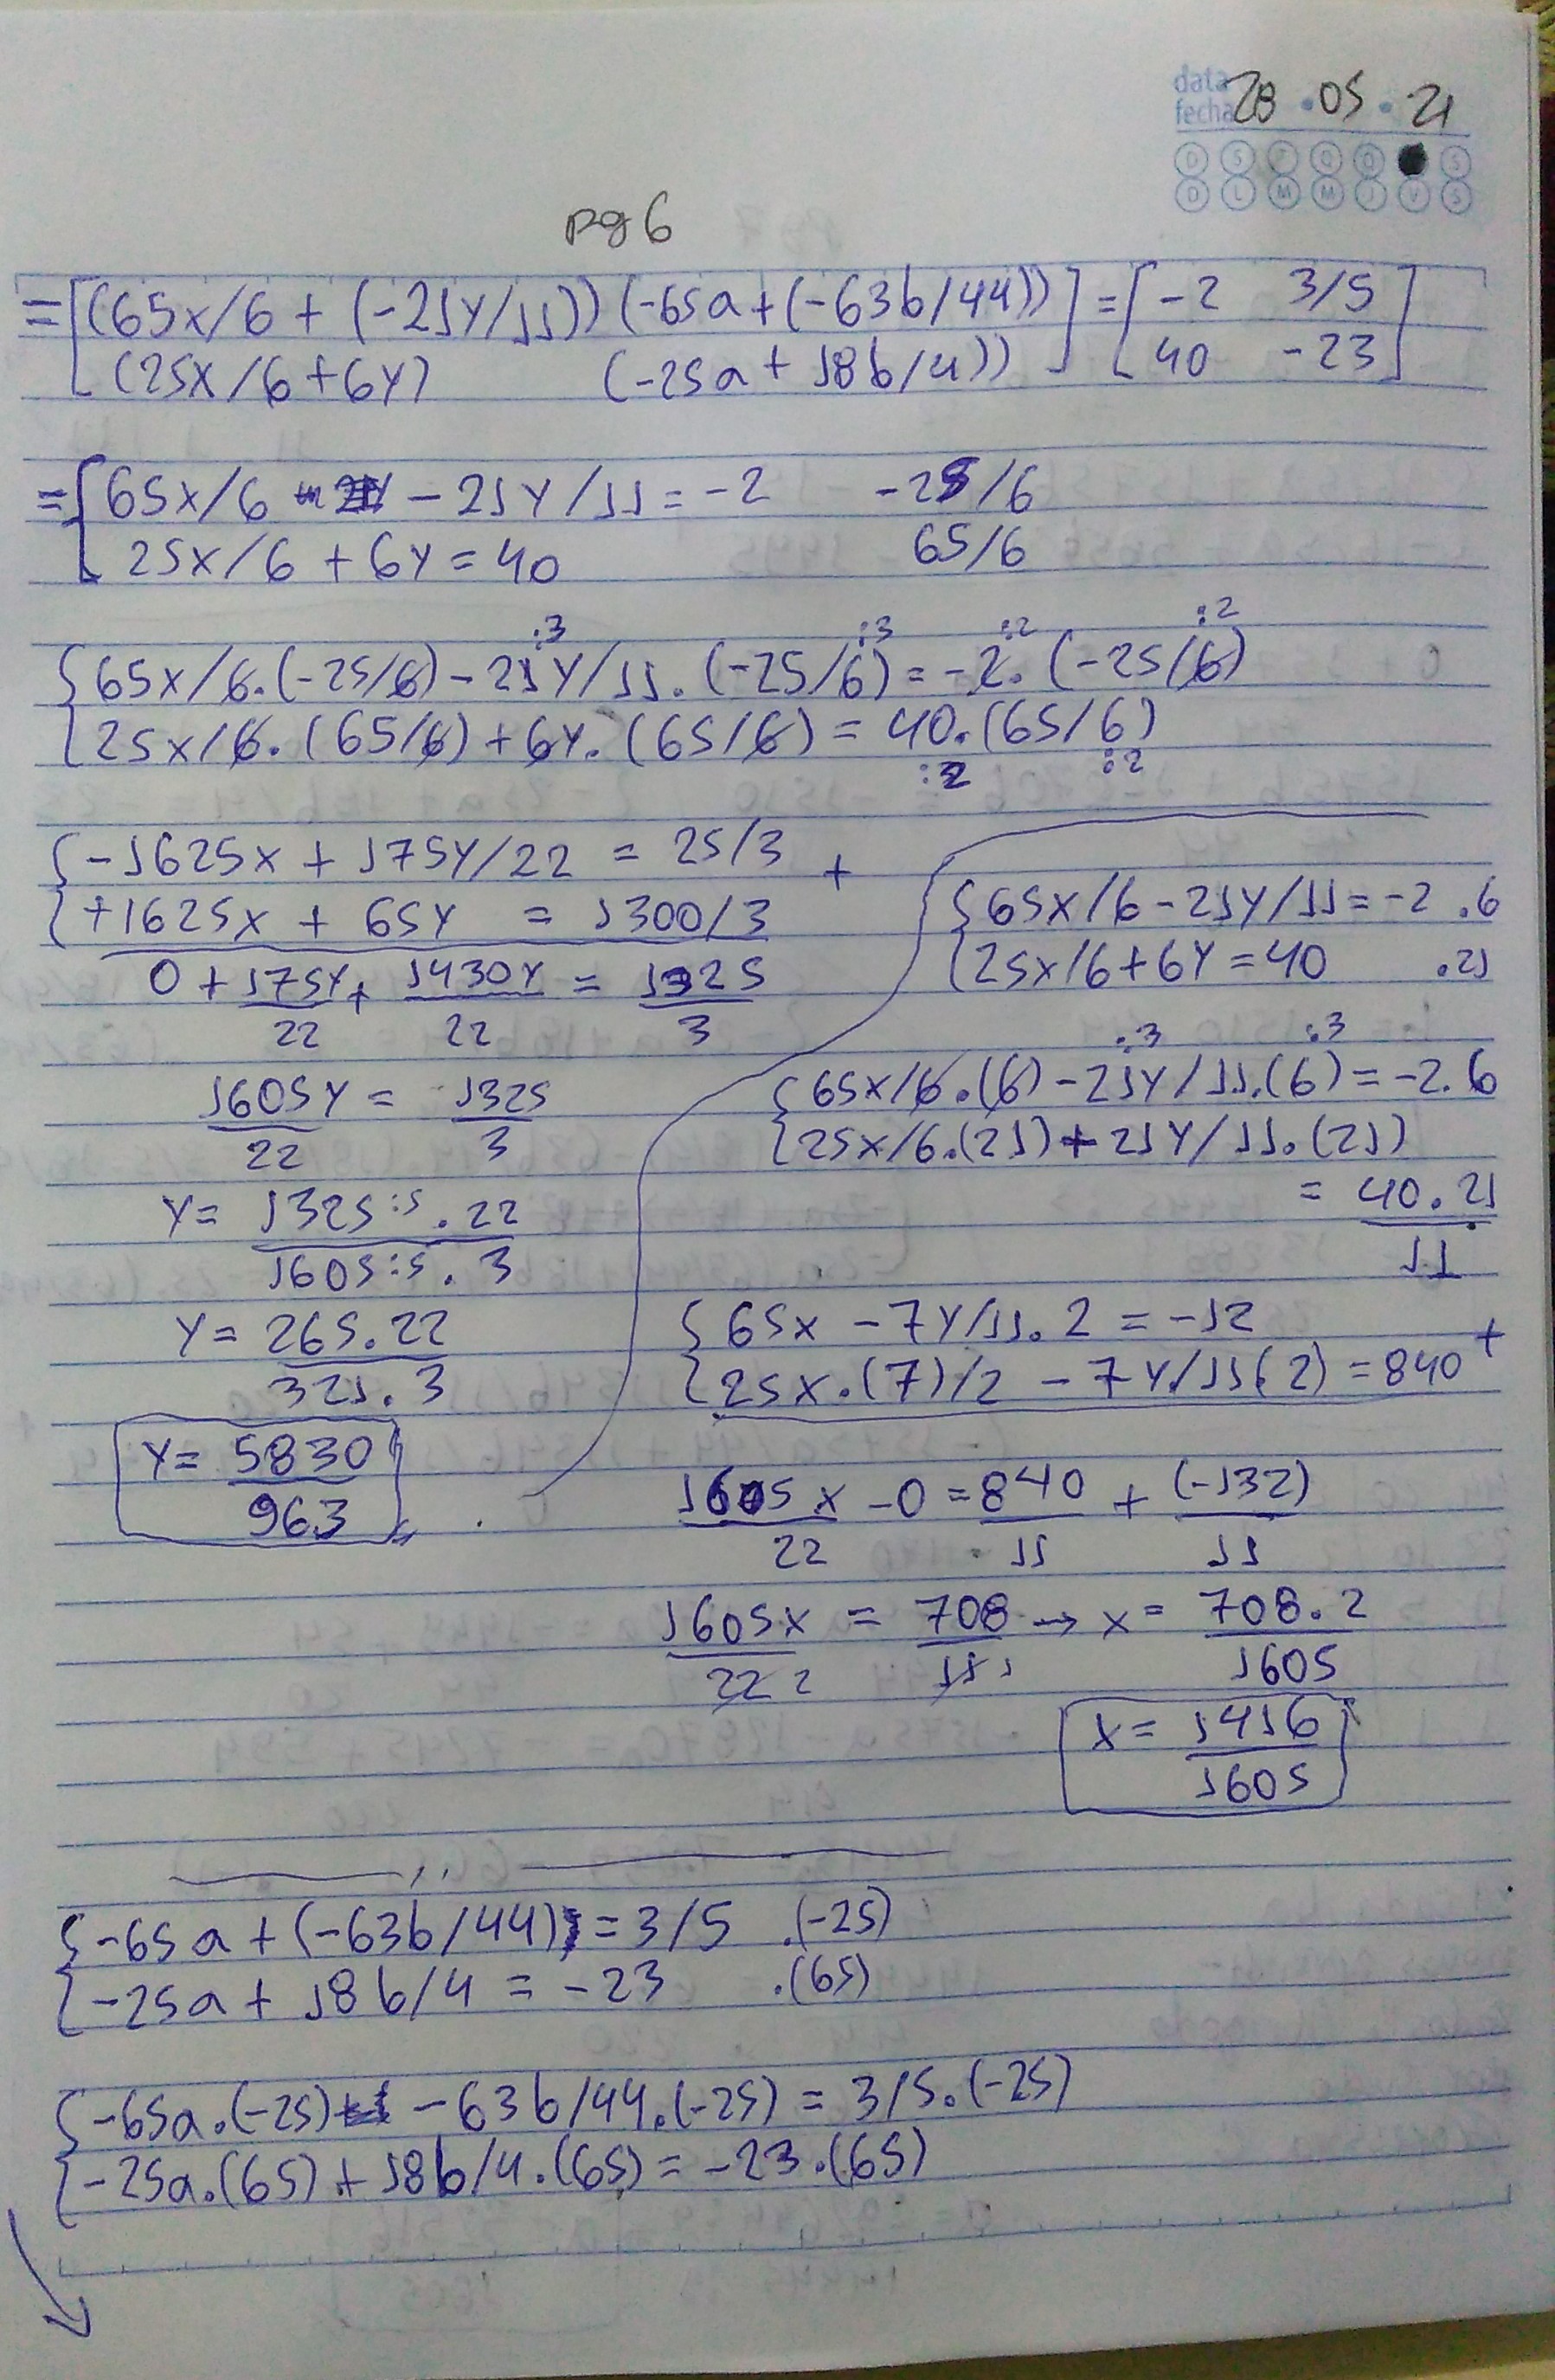 data
fecha 28 . 05 . 21
D S T Q Q S
D L M M J V S
pg 6
= [(65x/6 + (-21y/11)) (-65a + (-63b/44))] = [-2 3/5]
[(25x/6 + 6y) (-25a + 18b/4))] [40 -23]
= { 65x/6 - 21y/11 = -2 -25/6
{ 25x/6 + 6y = 40 65/6
:3 :3 :2 :2
{ 65x/6.(-25/6) - 21y/11.(-25/6) = -2.(-25/6)
{ 25x/6.(65/6) + 6y.(65/6) = 40.(65/6)
:2 :2
{ -1625x + 175y/22 = 25/3 +
{ +1625x + 65y = 1300/3
0 + 175y/22 + 1430y/22 = 1325/3
1605y/22 = 1325/3
y = 1325:5 . 22
1605:5 . 3
y = 265.22
321.3
y = 5830
963
{ 65x/6 - 21y/11 = -2 .6
{ 25x/6 + 6y = 40 .21
:3 :3
{ 65x/6.(6) - 21y/11.(6) = -2.6
{ 25x/6.(21) + 21y/11.(21)
= 40.21
11
{ 65x - 7y/11.2 = -12
{ 25x.(7)/2 - 7y/11(2) = 840 +
1605x/22 - 0 = 840/11 + (-132)/11
1605x/22 2 = 708/11 1 → x = 708.2/1605
x = 1416
1605
{ -65a + (-63b/44) = 3/5 .(-25)
{ -25a + 18b/4 = -23 .(65)
{ -65a.(-25) - 63b/44.(-25) = 3/5.(-25)
{ -25a.(65) + 18b/4.(65) = -23.(65)